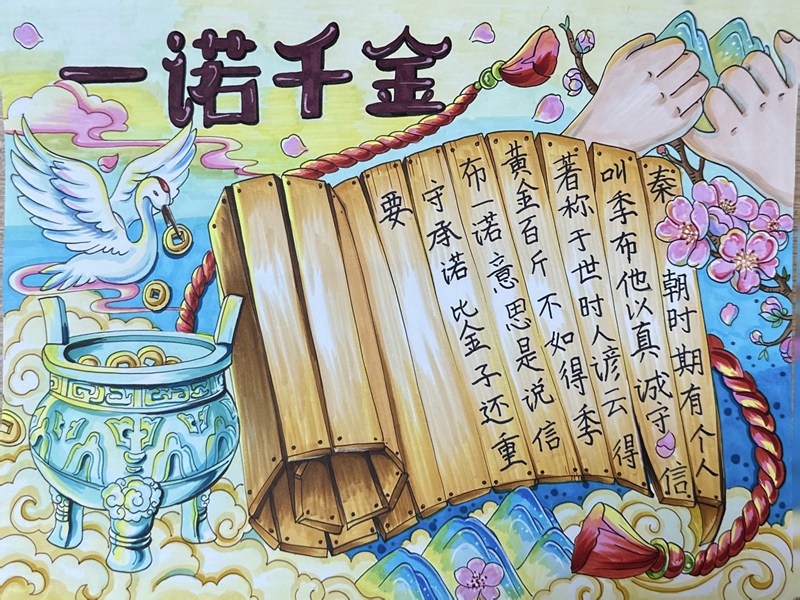 一诺千金
秦朝时期有个人
叫季布他以真诚守信
著称于世时人谚云得
黄金百斤不如得季
布一诺意思是说信
守承诺比金子还重
要